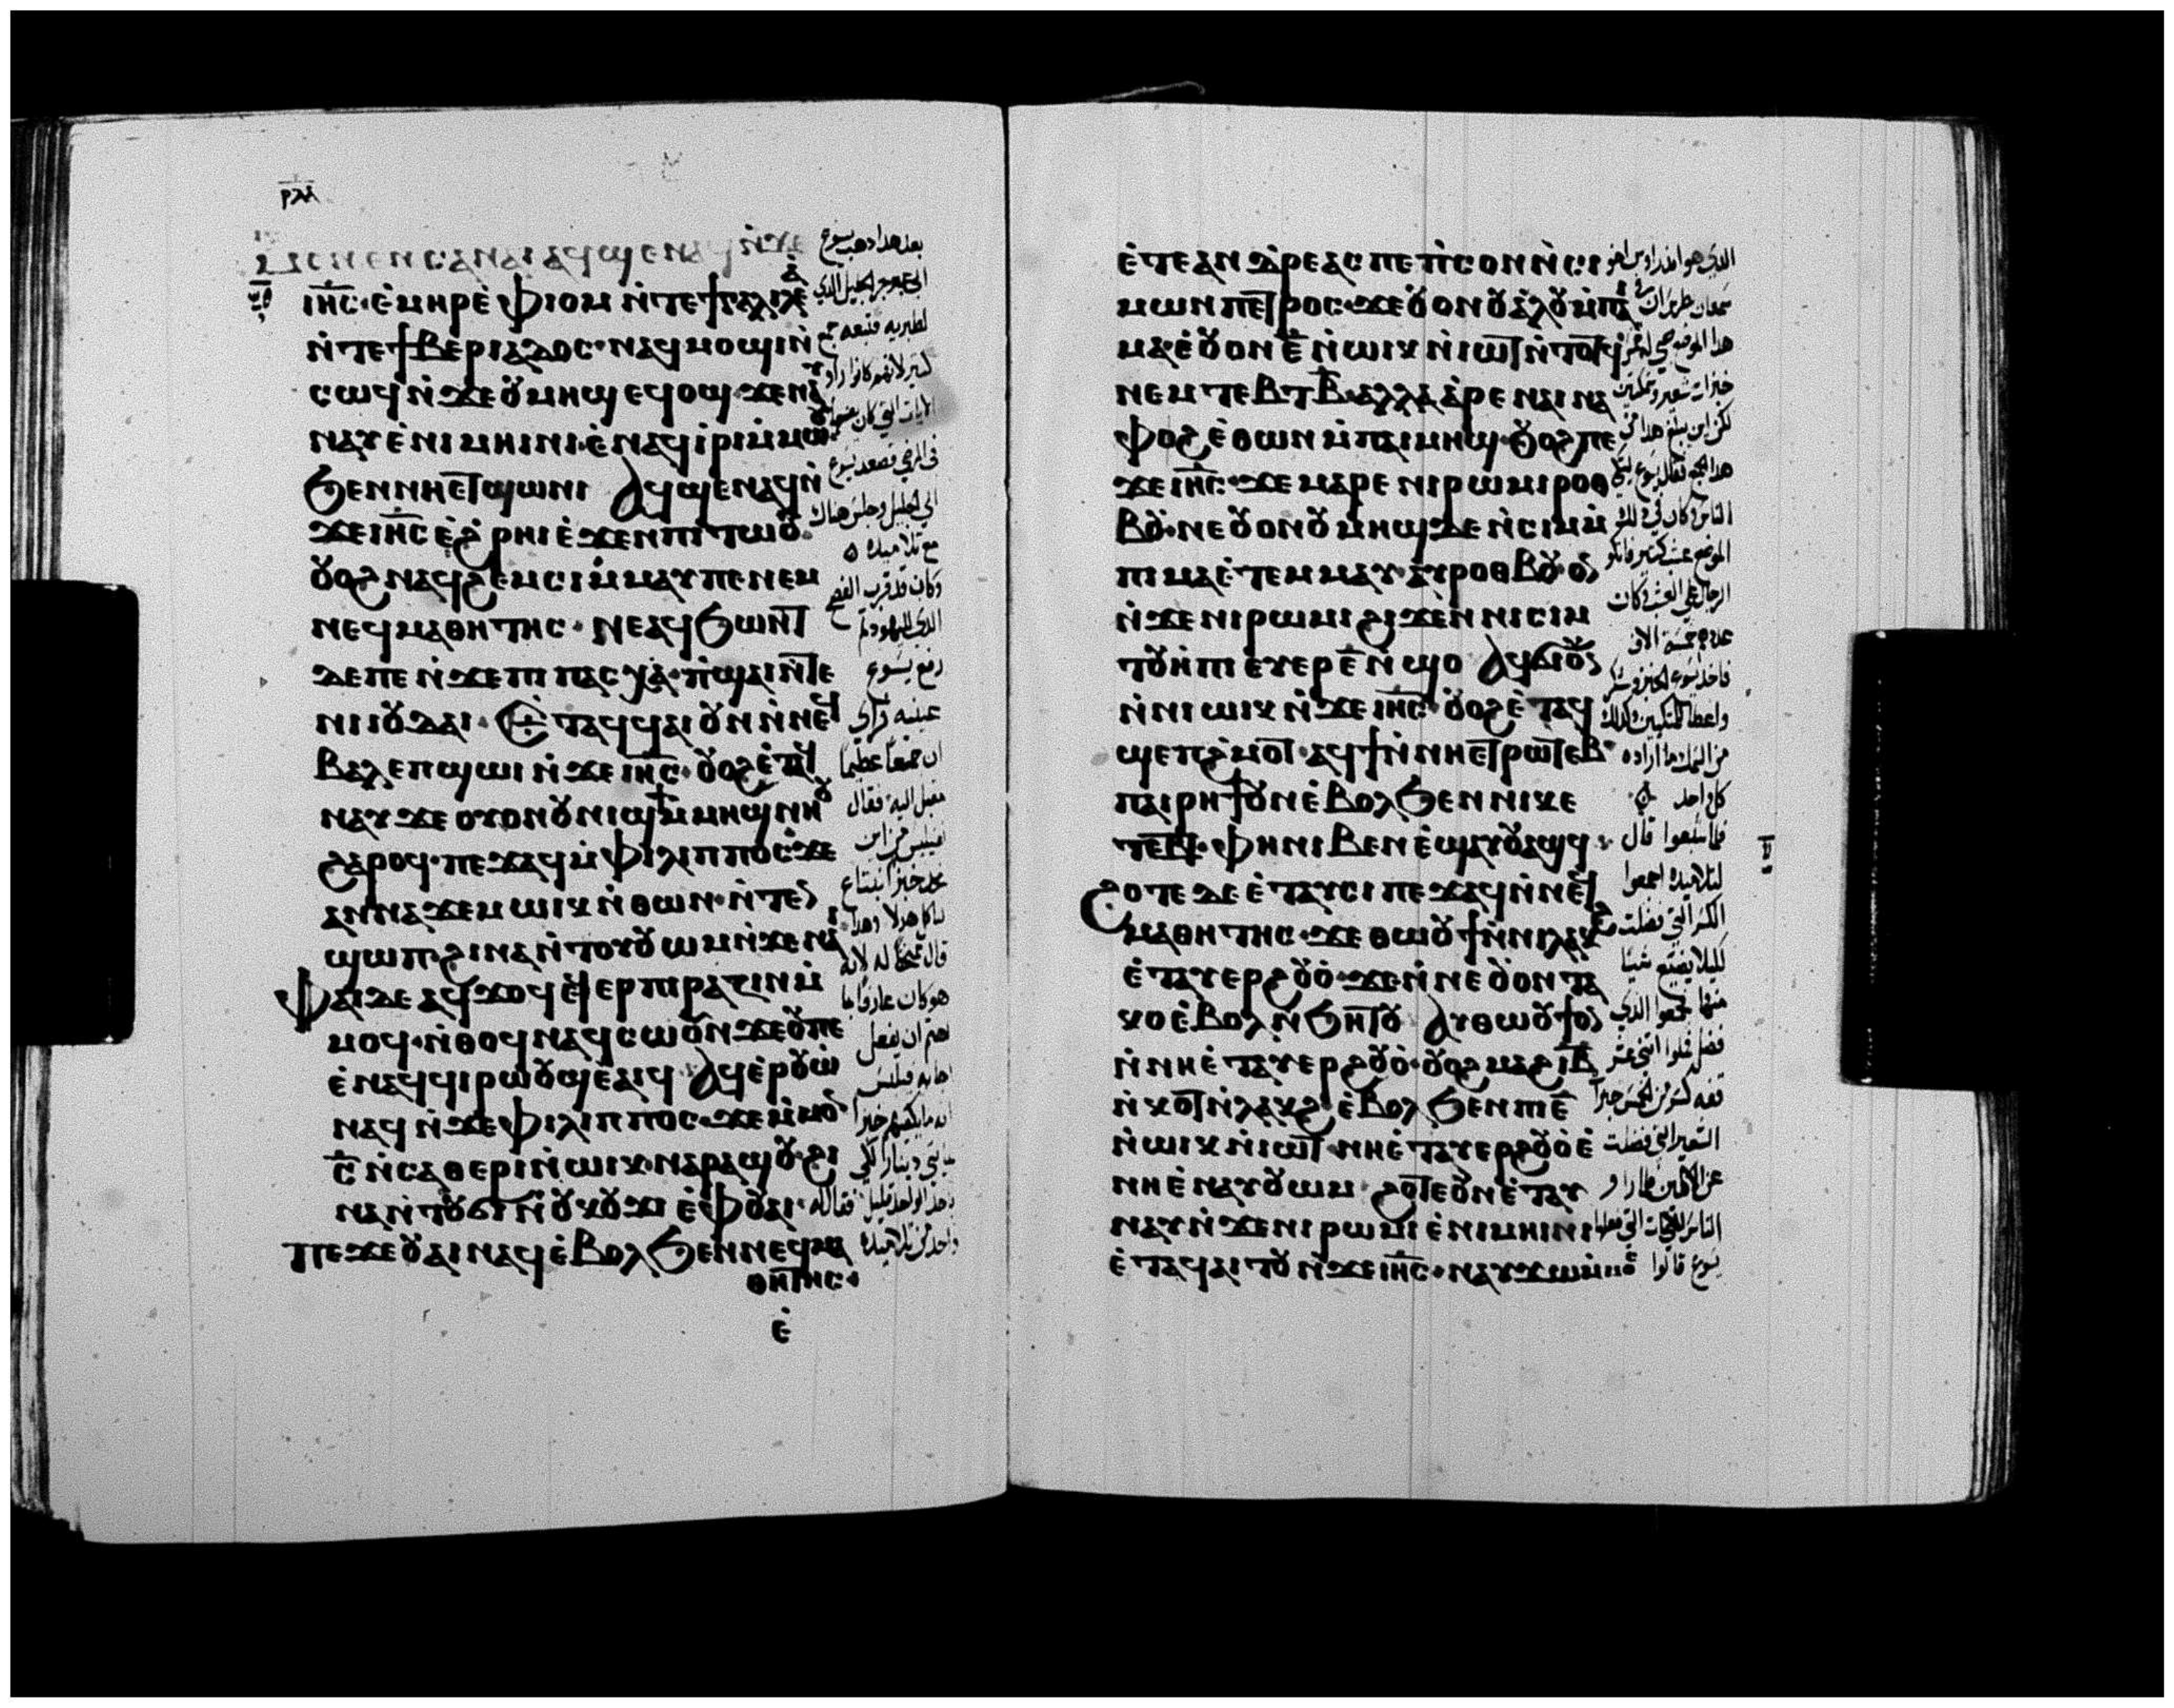 ⲣⲗⲁ
ⲙⲉⲛⲉⲛⲥⲁⲛⲁⲓⲁϥϣⲉⲛⲁϥⲛ̀ϫⲉ
ⲓⲏ̅ⲥ̅·ⲉ̀ⲙⲏⲣⲉ̀ⲫⲓⲟⲙ ⲛ̀ⲧⲉϯⲅⲁⲗⲓⲗⲉ̀ⲁ̀
ⲛ̀ⲧⲉϯⲃⲉⲣⲓⲁⲇⲟⲥ·ⲛⲁϥⲙⲟϣⲓⲛ̀
ⲥⲱϥⲛ̀ϫⲉⲟⲩⲙⲏϣ ⲉϥⲟϣ·ϫⲉⲛⲁⲩ
ⲛⲁⲩⲉ̀ⲛⲓⲙⲏⲓⲛⲓ·ⲉ̀ⲛⲁϥⲓ̀ⲣⲓⲙ̀ⲙⲱⲟⲩ
ϧⲉⲛⲛⲏⲉⲧϣⲱⲛⲓ ⲁϥϣⲉⲛⲁϥⲛ̀
ϫⲉⲓⲏ̅ⲥ̅ ⲉ̀ϩⲣⲏⲓⲉ̀ϫⲉⲛⲡⲓⲧⲱⲟⲩ·
ⲟⲩⲟϩ ⲛⲁϥϩⲉⲙⲥⲓⲙ̀ⲙⲁⲩⲡⲉⲛⲉⲙ
ⲛⲉϥⲙⲁⲑⲏⲧⲏⲥ·ⲛⲉⲁϥϧⲱⲛⲧ
ⲇⲉⲡⲉ ⲛ̀ϫⲉⲡⲓⲡⲁⲥⲭⲁ·ⲡ̀ϣⲁⲓⲛ̀ⲧⲉ
ⲛⲓⲓⲟⲩⲇⲁⲓ·ⲉⲧⲁϥϥⲁⲓⲟⲩⲛ ⲛ̀ⲛⲉϥ
ⲃⲁⲗⲉⲡϣⲱⲓ ⲛ̀ϫⲉⲓⲏ̅ⲥ̅·ⲟⲩⲟϩⲉ̀ⲧⲁϥ
ⲛⲁⲩϫⲉ ⲟⲩⲟⲛⲟⲩⲛⲓϣϯⲙ̀ⲙⲏϣⲛⲏⲟⲩ
ϩⲁⲣⲟϥ·ⲡⲉϫⲁϥⲙ̀ⲫⲓⲗⲓⲡⲡⲟⲥ·ϫⲉ
ⲁⲛⲛⲁϫⲉⲙ ⲱⲓⲕ ⲛ̀ⲑⲱⲛ·ⲛ̀ⲧⲉⲛ
ϣⲱⲡ·ϩⲓⲛⲁ ⲛ̀ⲧⲟⲩⲟⲩⲱⲙ ⲛ̀ϫⲉⲛⲁⲓ
ⲫⲁⲓⲇⲉ ⲁϥϫⲟϥ ⲉϥⲉⲣⲡⲓⲣⲁⲍⲓⲛ ⲙ̀
ⲙⲟϥ·ⲛ̀ⲑⲟϥ ⲛⲁϥⲥⲱⲟⲩⲛ ϫⲉⲟⲩⲡⲉ
ⲉ̀ⲛⲁϥϥⲓⲣⲱⲟⲩϣ ⲉ̀ⲁⲓϥ ⲁϥⲉ̀ⲣⲟⲩⲱ̀
ⲛⲁϥ ⲛ̀ϫⲉⲫⲓⲗⲓⲡⲡⲟⲥ·ϫⲉⲙ̀ⲙⲟⲛ
ⲥ̅ ⲛ̀ⲥⲁⲑⲉⲣⲓ ⲛ̀ⲱⲓⲕ·ⲛⲁⲣⲁϣⲟⲩ·ϩⲓ
ⲛⲁ ⲛ̀ⲧⲟⲩϭⲓ ⲛ̀ⲟⲩⲕⲟⲩϫⲓ ⲉ̀ⲫⲟⲩⲁⲓ·
ⲡⲉϫⲉⲟⲩⲁⲓ ⲛⲁϥ ⲉ̀ⲃⲟⲗϧⲉⲛⲛⲉϥⲙⲁ
ⲑⲏⲧⲏⲥ·
ⲉ̀
بعد هذا ذهب يسوع
الى عبر بحر الجليل الذي
لطبرية فتبعه جمع
كثير لانهم كانوا راوا
الايات التي كان يصنعها
في المرضى فصعد يسوع
الى الجبل وجلس هناك
مع تلاميذه
وكان قد قرب الفصح
الذي لليهود ثم
رفع يسوع
عينيه فراى
ان جمعا عظيما
مقبل اليه فقال
فيلبس من اين
نجد خبزا نبتاع
لياكل هولا وهذا
قال ممتحنا له لانه
هو كان عارفا ما
اهتم ان يفعل
اجابه فيلبس
انه ما يكفيهم خبزا
بمايتي دينار لكي
ياخذ الواحد قليل فقال له
واحد من تلاميذه
ⲉ̀ⲧⲉⲁⲛⲇⲣⲉⲁⲥ ⲡⲉ ⲡ̀ⲥⲟⲛ ⲛ̀ⲥⲓ
ⲙⲱⲛ ⲡⲉⲧⲣⲟⲥ·ϫⲉⲟⲩⲟⲛ ⲟⲩⲁⲗⲟⲩ ⲙ̀ⲡⲁⲓ
ⲙⲁ·ⲉ̀ⲟⲩⲟⲛ ⲉ̅ ⲛ̀ⲱⲓⲕ ⲛ̀ⲓⲱⲧ ⲛ̀ⲧⲟⲧϥ
ⲛⲉⲙ ⲧⲉⲃⲧ ⲃ̅·ⲁⲗⲗⲁ ⲁ̀ⲣⲉ ⲛⲁⲓ ⲛⲁ
ⲫⲟϩ ⲉ̀ⲑⲱⲛ ⲙ̀ⲡⲁⲓⲙⲏϣ·ⲟⲩⲟϩ ⲡⲉ
ϫⲉ ⲓⲏ̅ⲥ̅·ϫⲉ ⲙⲁⲣⲉ ⲛⲓⲣⲱⲙⲓ ⲣⲟⲑ
ⲃⲟⲩ·ⲛⲉ ⲟⲩⲟⲛ ⲟⲩⲙⲏϣ ⲇⲉ ⲛ̀ⲥⲓⲙ ⲙ̀
ⲡⲓⲙⲁ ⲉ̀ⲧⲉⲙⲙⲁⲩ·ⲁⲩⲣⲟⲑⲃⲟⲩ ⲟⲩⲛ
ⲛ̀ϫⲉ ⲛⲓⲣⲱⲙⲓ ϩⲓϫⲉⲛ ⲛⲓⲥⲓⲙ
ⲧⲟⲩⲏⲡⲓ ⲉⲩⲉⲣ ⲉ̅ ⲛ̀ϣⲟ ⲁϥϭⲓ ⲟⲩⲛ
ⲛ̀ⲛⲓⲱⲓⲕ ⲛ̀ϫⲉ ⲓⲏ̅ⲥ̅·ⲟⲩⲟϩ ⲉ̀ⲧⲁϥ
ϣⲉⲡϩ̀ⲙⲟⲧ·ⲁϥϯ ⲛ̀ⲛⲏⲉⲧⲣⲱⲧⲉⲃ
ⲡⲁⲓⲣⲏϯ ⲟⲩⲛ ⲉ̀ⲃⲟⲗϧⲉⲛ ⲛⲓⲕⲉ
ⲧⲉⲃⲧ·ⲫⲏ ⲛⲓⲃⲉⲛ ⲉ̀ϣⲁⲩⲟⲩⲁϣϥ
ϩⲟⲧⲉ ⲇⲉ ⲉ̀ⲧⲁⲩⲥⲓ ⲡⲉϫⲁϥ ⲛ̀ⲛⲉϥ
ⲙⲁⲑⲏⲧⲏⲥ·ϫⲉ ⲑⲱⲟⲩϯ ⲛ̀ⲛⲓⲗⲁⲕϩ
ⲉ̀ⲧⲁⲩⲉⲣϩⲟⲩⲟ̀·ϫⲉ ⲛ̀ⲛⲉ ⲟⲩⲟⲛ ⲧⲁ
ⲕⲟ ⲉ̀ⲃⲟⲗ ⲛ̀ϧⲏⲧⲟⲩ ⲁⲩⲑⲱⲟⲩϯ ⲟⲩⲛ
ⲛ̀ⲛⲏ ⲉ̀ⲧⲁⲩⲉⲣϩⲟⲩⲟ̀·ⲟⲩⲟϩ ⲙⲁϩ ⲓ̅ⲃ̅
ⲛ̀ⲕⲟⲧ ⲛ̀ⲗⲁⲕϩ ⲉ̀ⲃⲟⲗ ϧⲉⲛ ⲡⲓ ⲉ̅
ⲛ̀ⲱⲓⲕ ⲛ̀ⲓⲱⲧ·ⲛⲏ ⲉ̀ⲧⲁⲩⲉⲣϩⲟⲩⲟ̀ ⲉ̀
ⲛⲏ ⲉ̀ⲛⲁⲩⲟⲩⲱⲙ ϩⲟⲧⲉ ⲟⲩⲛ ⲉ̀ⲧⲁⲩ
ⲛⲁⲩ ⲛ̀ϫⲉ ⲛⲓⲣⲱⲙⲓ ⲉ̀ⲛⲓⲙⲏⲓⲛⲓ
ⲉ̀ⲧⲁϥⲁⲓⲧⲟⲩ ⲛ̀ϫⲉ ⲓⲏ̅ⲥ̅·ⲛⲁⲩϫⲱⲙ̀ⲙⲟⲥ
الذي هو اندراوس اخو
سمعان بطرس ان
هذا الموضع صبي له خمس
خبزات شعير وسمكتين
لكن اين يبلغ هذا من
هذا الجمع فقال يسوع ليتكي
الناس وكان في ذلك
الموضع عشب كثير فاتكوا
الرجال على العشب وكان
عددهم خمسة الاف
فاخذ يسوع الخبز وشكر
واعطا المتكيين وكذلك
من السمك ما اراده
كل واحد
فلما شبعوا قال
لتلاميذه اجمعوا
الكسر التي فضلت
ليلا يضيع شيا
منها فجمعوا الذي
فضل فملوا اثني عشر
قفة كسر من الخمس خبزات
الشعير التي فضلت
عن الاكلين فلما راوا
الناس الايات التي فعلها
يسوع قالوا